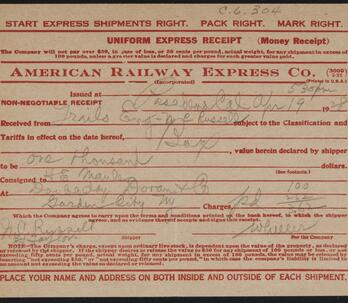 C.6.304
START EXPRESS SHIPMENTS RIGHT. PACK RIGHT. MARK RIGHT.
UNIFORM EXPRESS RECEIPT (Money Receipt)
The Company will not pay over $50, in case of loss, or 50 cents per pound, actual weight, for any shipment in excess of
100 pounds, unless a greater value is declared and charges for such greater value paid.
AMERICAN RAILWAY EXPRESS CO.
(Incorporated)
Issued at Pasadena Cal Apr 19
NON-NEGOTIABLE RECEIPT
Received from Russell subject to the Classification and
Tariffs in effect on the date hereof,
value herein declared by shipper
to be One Thousand dollars
Consigned to
at Doubleday Doran
Garden City Charges, pd
Which the Company agrees to carry upon the terms and conditions printed on the back hereof, to which the shipper
agrees, and as evidence thereof accepts and signs this receipt.
Shipper For the Company
NOTE.—The Company's charge, except upon ordinary live stock, is dependent upon the value of the property, as declared
or released by shipper. If the shipper desires to release the value to $50 for any shipment of 100 pounds or less, or not
exceeding fifty cents per pound, actual weight, for any shipment in excess of 100 pounds, the value may be released by
inserting $50 (or not exceeding fifty cents per pound), in which case the company's liability is limited to
an amount not exceeding the value so declared or released.
PLACE YOUR NAME AND ADDRESS ON BOTH INSIDE AND OUTSIDE OF EACH SHIPMENT.